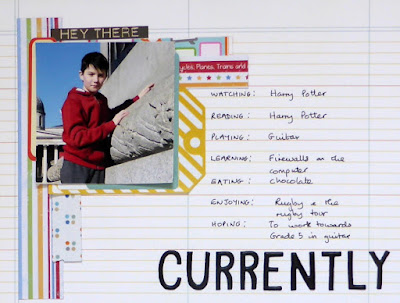 HEY THERE
cycles, Planes, Trains and
WATCHING: Harry Potter
READING: Harry Potter
PLAYING: Guitar
LEARNING: Firewalls on the
computer
EATING: chocolate
ENJOYING: Rugby & the
rugby tour
HOPING: To work towards
Grade 5 in guitar
CURRENTLY